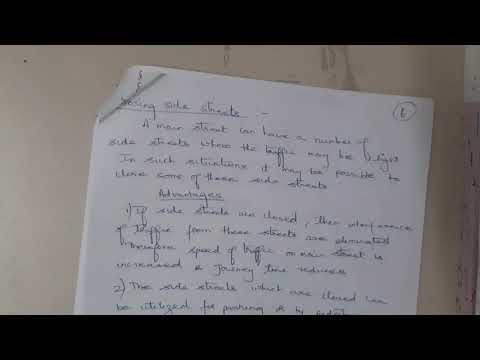 6
losing side streets :-
A main street can have a number of
side streets where the traffic may be light
In such situations it may be possible to
close some of these side streets
Advantages
1) If side streets are closed, then interference
of traffic from these streets are eliminated
Therefore speed of traffic on main street is
increased & Journey time reduces
2) The side streets which are closed can
be utilized for parking & by